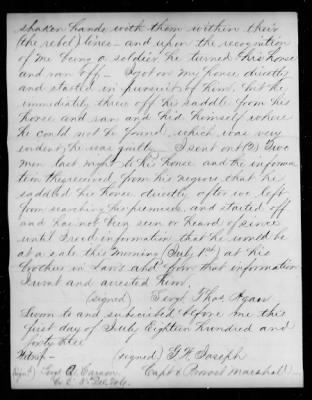 shaken hands with them within their
(the rebel) lines – and upon the recognition
of me being a soldier he turned his horse
and ran off – I got on my horse directly
and started in pursuit of him, but he
immediately threw off his saddle from his
horse and ran and hid himself where
he could not be found, which was very
evident he was guilty – I sent out (2) Two
men last night to his house and the informa
tion they received from his negroes that he
saddled his horse directly after we left
from searching his premises, and started off
and has not been seen or heard of since
until I rec'd information that he would be
at a sale this morning (July 1st) at his
brothers in Laws and from that information
I went and arrested him.
(signed) Sergt Thos. Agan
Sworn to and subscribed before me this
first day of July Eighteen hundred and
sixty three
Witness – (signed) G. W. Joseph
(signd) Sergt Carson Capt & Provost Marshall –
Co 5th Del. Vols.